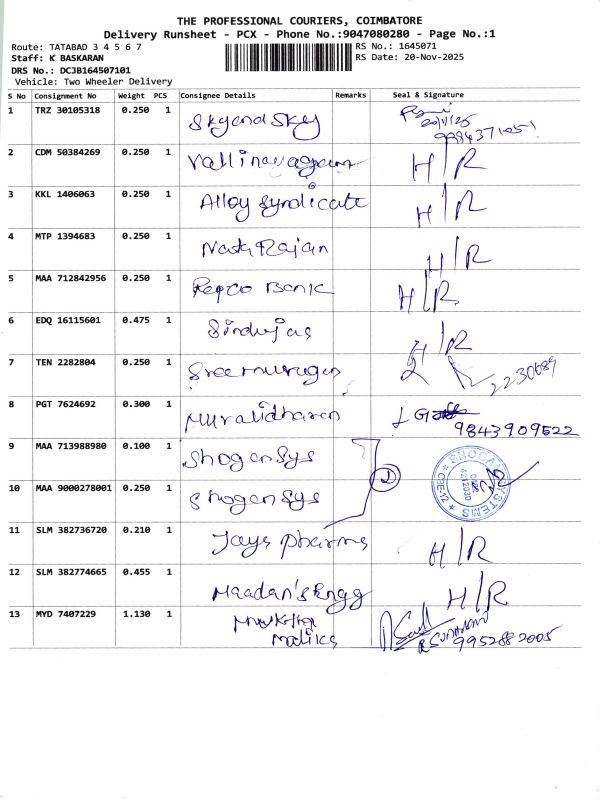 THE PROFESSIONAL COURIERS, COIMBATORE
Delivery Runsheet - PCX - Phone No.:9047080280 - Page No.:1
Route: TATABAD 3 4 5 6 7 RS No.: 1645071
Staff: K BASKARAN RS Date: 20-Nov-2025
DRS No.: DCJB164507101
Vehicle: Two Wheeler Delivery
S No Consignment No Weight PCS Consignee Details Remarks Seal & Signature
1 TRZ 30105318 0.250 1 Skyandsky 20/11/25
2 CDM 50384269 0.250 1 Vallinayagam H/R
3 KKL 1406063 0.250 1 Alloy Syndicate H/R
4 MTP 1394683 0.250 1 H/R
5 MAA 712842956 0.250 1 Repco Bank H/R
6 EDQ 16115601 0.475 1 Sindujas H/R
7 TEN 2282804 0.250 1 Sreemurugan 2230689
8 PGT 7624692 0.300 1 Muralidharan 9843909522
9 MAA 713988980 0.100 1 Shogansys
10 MAA 9000278001 0.250 1 Shogansys 2
11 SLM 382736720 0.210 1 Jays pharma H/R
12 SLM 382774665 0.455 1 Maadan's Engg H/R
13 MYD 7407229 1.130 1 9952882005